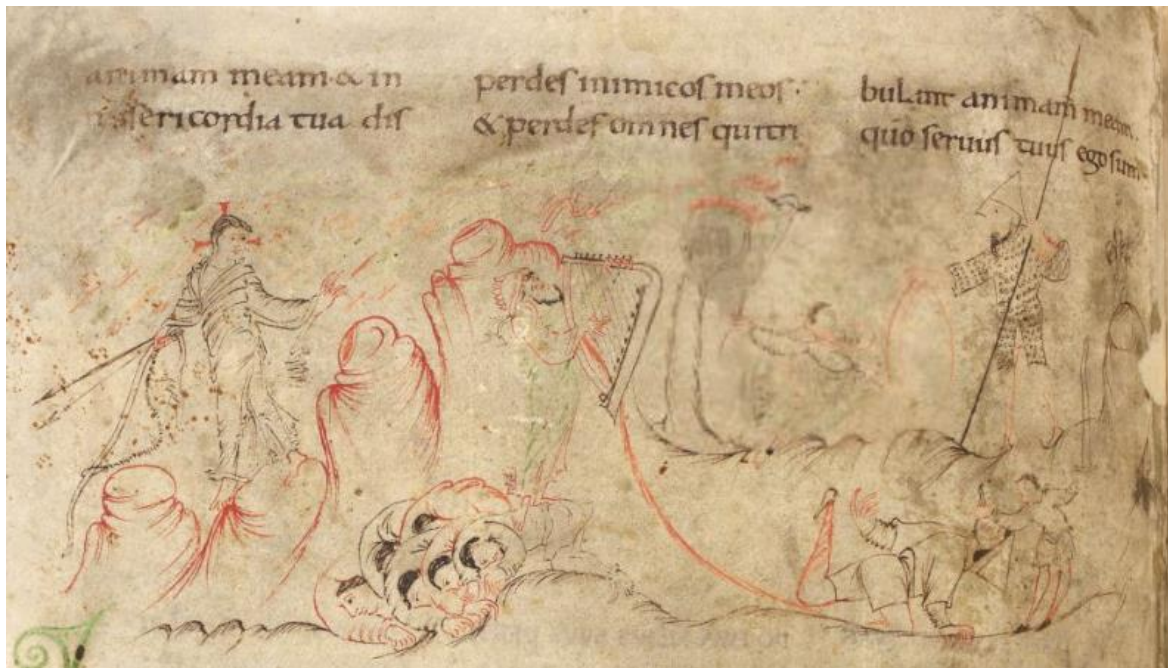 animam meam. & in
misericordia tua dis
perdes inimicos meos.
& perdes omnes qui tri
bulant animam meam.
quō seruus tuus ego sum